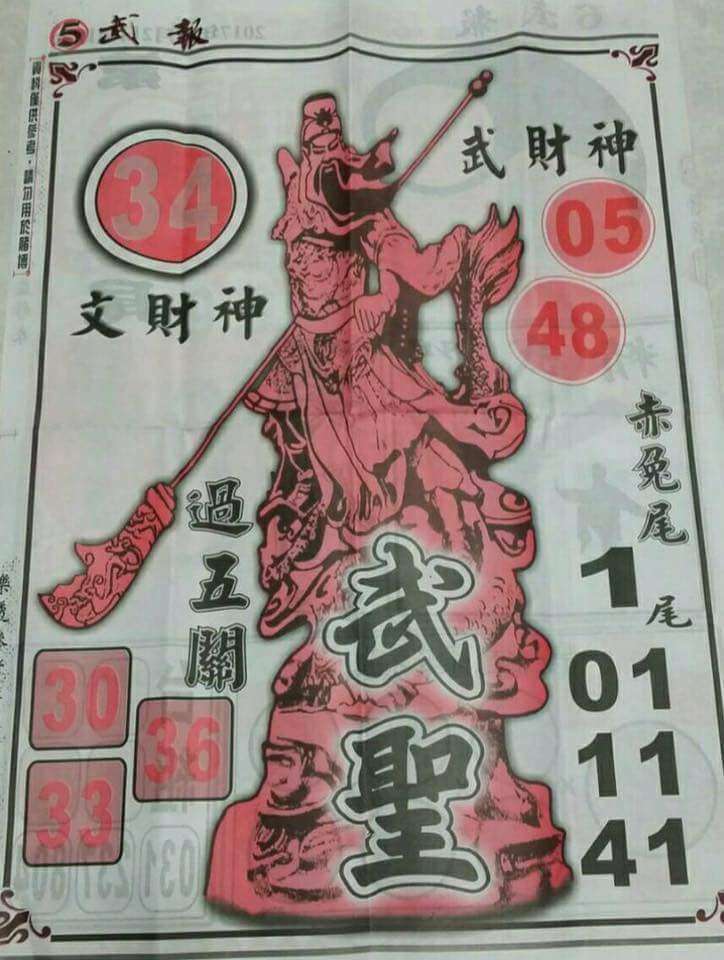 5 武報
資料僅供參考，請勿用於賭博
34
文財神
武財神
05
48
赤兔尾
1尾
01
11
41
過五關
30
36
33
武聖